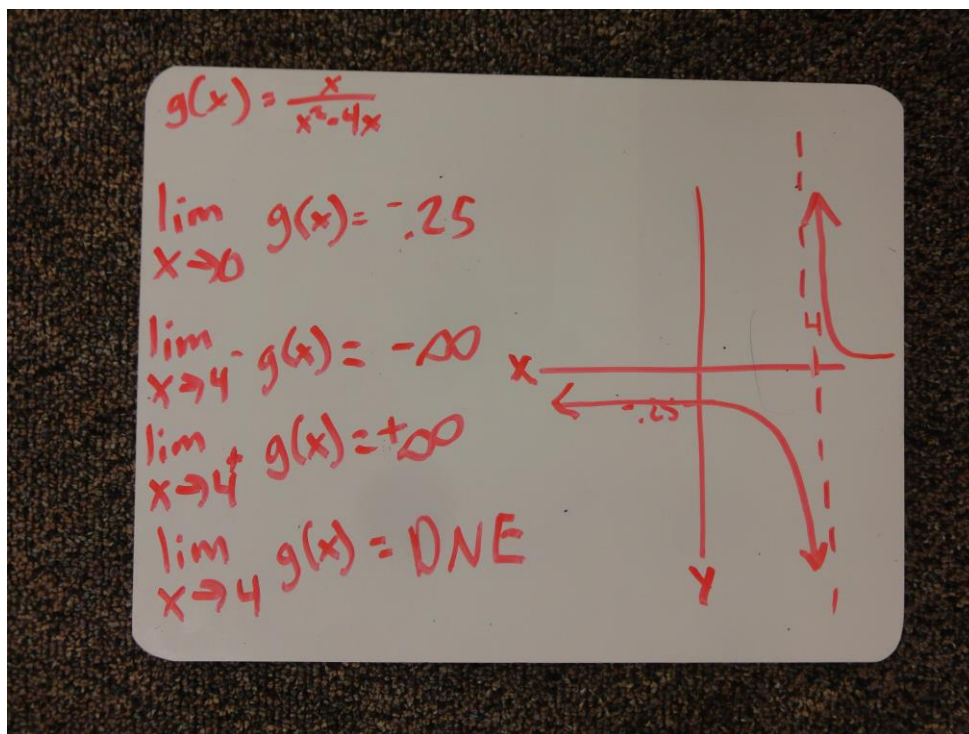 g(x) = x/(x²-4x)
lim x→0 g(x) = -.25
lim x→4⁻ g(x) = -∞
lim x→4⁺ g(x) = +∞
lim x→4 g(x) = DNE
4
X
-.25
Y